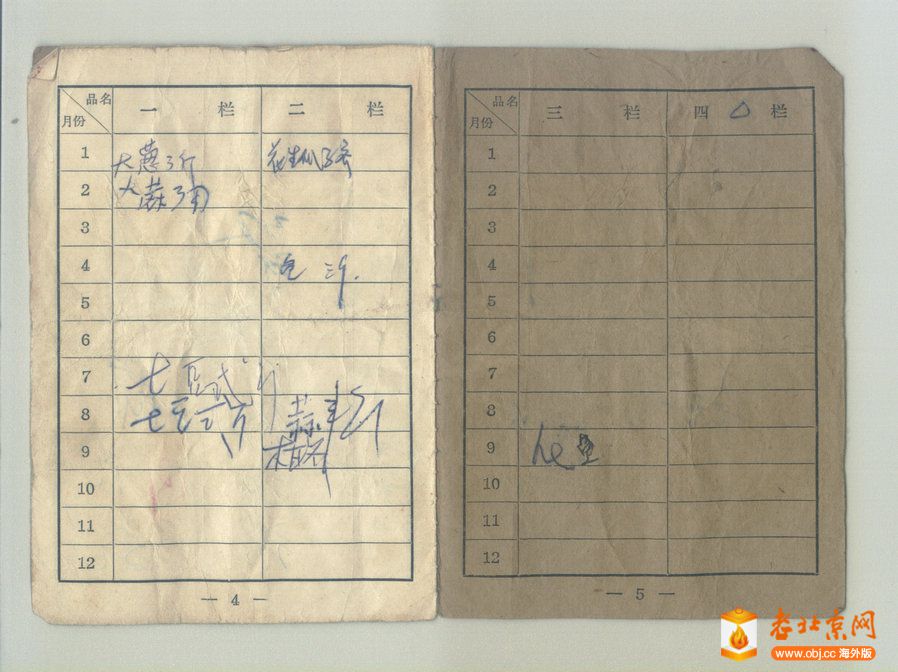 品名 一 栏 二 栏
月份
1 大葱3斤 花生瓜子
2 大蒜
3
4 三斤
5
6
7 土豆 斤
8 土豆 斤 蒜
9
10
11
12
— 4 —
品名 三 栏 四 栏
月份
1
2
3
4
5
6
7
8
9
10
11
12
— 5 —
老北京网
www.obj.cc 海外版